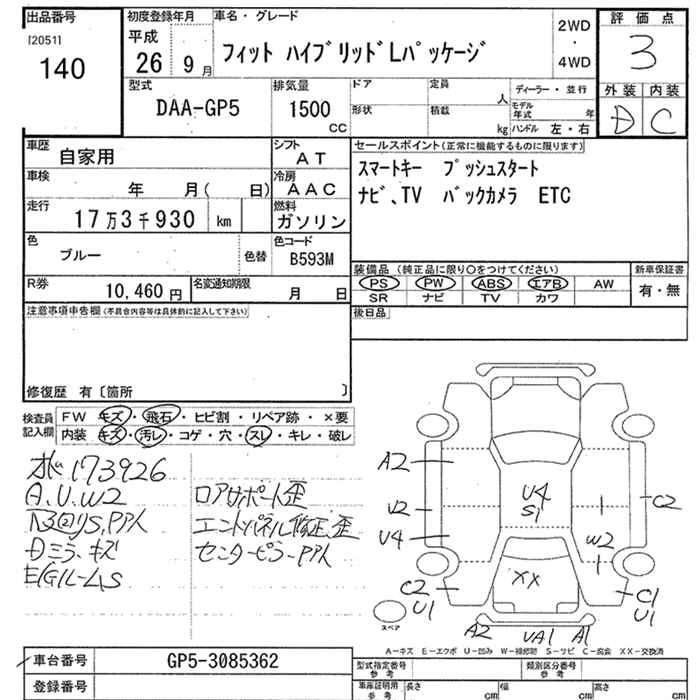 出品番号
[2051]
140
初度登録年月
平成
26 9月
車名・グレード
フィット ハイブリッドLパッケージ
2WD
・
4WD
評価点
3
外装 内装
D C
型式
DAA-GP5
排気量
1500
CC
ドア
形状
定員
人
積載
kg
ディーラー・並行
モデル年式 年
ハンドル 左・右
車歴
自家用
シフト
AT
車検
年 月( 日)
冷房
AAC
走行
17万3千930 km
燃料
ガソリン
色
ブルー
色替
色コード
B593M
R券
10,460円
名変通知期限
月 日
セールスポイント(正常に機能するものに限ります)
スマートキー プッシュスタート
ナビ、TV バックカメラ ETC
装備品 (純正品に限り○をつけてください)
新車保証書
PS PW ABS エアB AW
有・無
SR ナビ TV カワ
後日品
注意事項申告欄(不具合内容等は具体的に記入して下さい)
修復歴 有〔箇所 〕
検査員
記入欄
FW キズ・飛石・ヒビ割・リペア跡・×要
内装 キズ・汚レ・コゲ・穴・スレ・キレ・破レ
173926
A.U.W2
Dミラーキズ
ロアサポート歪
エンドパネル修正、歪
センターピラーPP人
A2
U2
U4
C2
U1
U4
S1
W2
C2
XX
C1
U1
A2
UA1
A1
スペア
A－キズ E－エクボ U－凹み W－補修跡 S－サビ C－腐食 XX－交換済
車台番号
GP5-3085362
登録番号
型式指定番号
参考
類別区分番号
参考
車庫証明用
参考
長さ cm
幅 cm
高さ cm